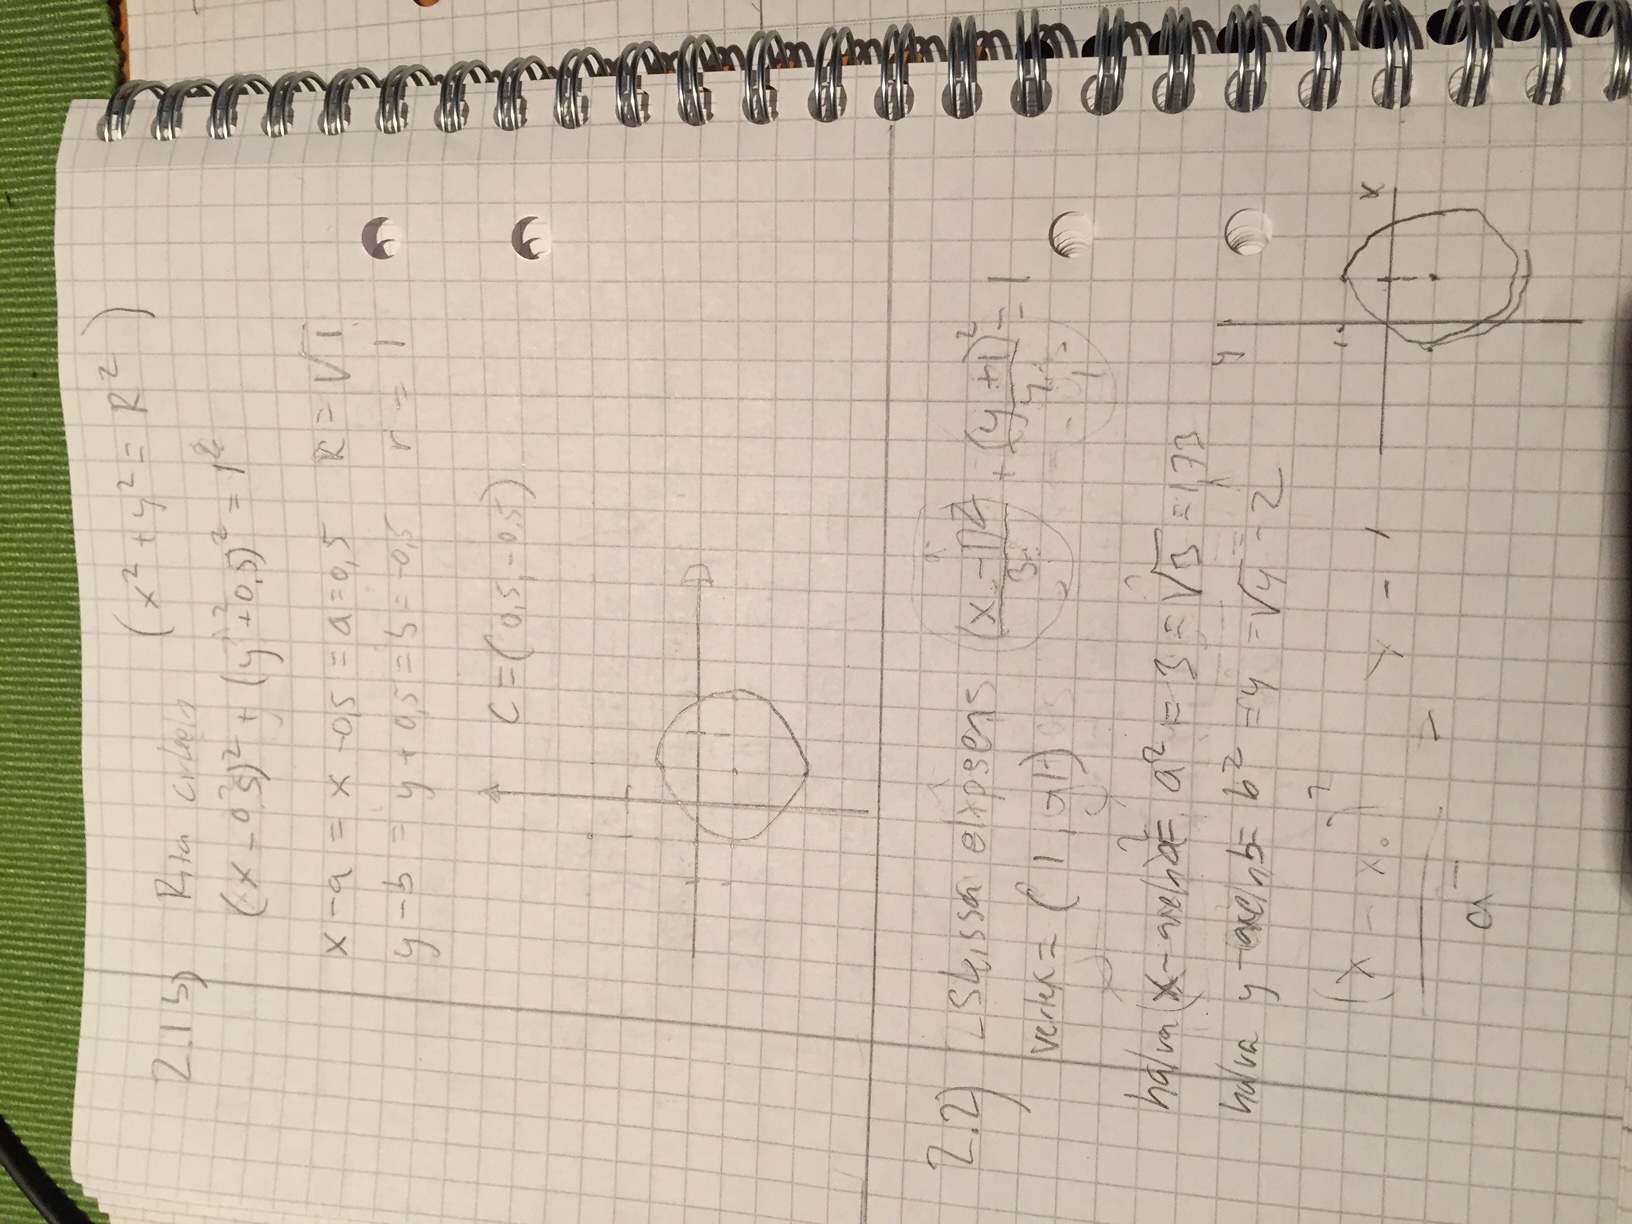 2.1b) Rita cirkeln (x² + y² = R²)
(x - 0,5)² + (y + 0,5)² = 1²
x - a = x - 0,5 = a = 0,5 R = √1
y - b = y + 0,5 = b = -0,5 r = 1
C = (0,5, -0,5)
2.2) Skissa elipsens (x - 1)²/3 + (y + 1)²/4 = 1
vertex = (1, -1)
halva x-axeln a = a² = 3 = √3 = 1,73
halva y-axeln b = b² = 4 = √4 = 2
y
x
1
(x - x₀)²
a
y - 1